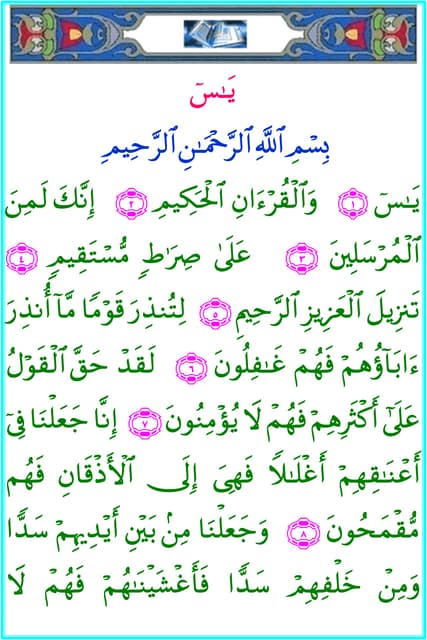 يَـٰسٓ
بِسْمِ ٱللَّهِ ٱلرَّحْمَـٰنِ ٱلرَّحِيمِ
يَـٰسٓ ١ وَٱلْقُرْءَانِ ٱلْحَكِيمِ ٢ إِنَّكَ لَمِنَ
ٱلْمُرْسَلِينَ ٣ عَلَىٰ صِرَٰطٍ مُّسْتَقِيمٍ ٤
تَنزِيلَ ٱلْعَزِيزِ ٱلرَّحِيمِ ٥ لِتُنذِرَ قَوْمًا مَّآ أُنذِرَ
ءَابَآؤُهُمْ فَهُمْ غَـٰفِلُونَ ٦ لَقَدْ حَقَّ ٱلْقَوْلُ
عَلَىٰٓ أَكْثَرِهِمْ فَهُمْ لَا يُؤْمِنُونَ ٧ إِنَّا جَعَلْنَا فِىٓ
أَعْنَـٰقِهِمْ أَغْلَـٰلًا فَهِىَ إِلَى ٱلْأَذْقَانِ فَهُم
مُّقْمَحُونَ ٨ وَجَعَلْنَا مِنۢ بَيْنِ أَيْدِيهِمْ سَدًّا
وَمِنْ خَلْفِهِمْ سَدًّا فَأَغْشَيْنَـٰهُمْ فَهُمْ لَا